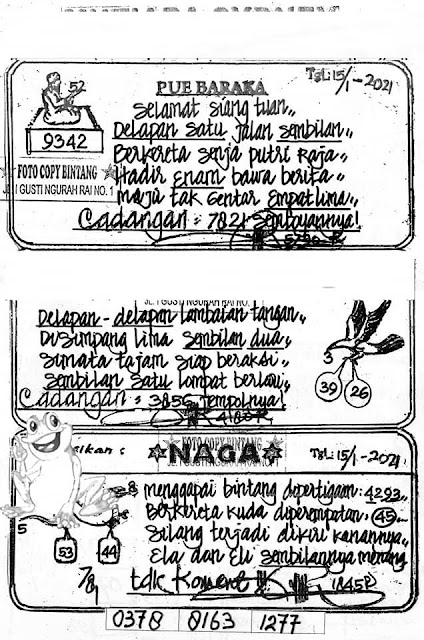 PUE BARAKA
Tgl: 15/1-2021
52
9342
FOTO COPY BINTANG
JL. I GUSTI NGURAH RAI NO. 1
Selamat siang tuan,,
Delapan satu jalan sembilan,,
Berkereta senja putri Raja,,
Hadir enam bawa berita,,
Maju tak Gentar Empat lima,,
Cadangan: 7821 Semboyannya!
JL. I GUSTI NGURAH RAI NO. 1
Delapan - delapan lambaian tangan,,
Disimpang lima sembilan dua,,
Simata tajam siap beraksi,,
Sembilan Satu lompat berlari,,
Cadangan: 3856 Tempolnya!
4180R
3
39 26
sikan:
FOTO COPY BINTANG
NAGA
Tgl: 15/1-2021
menggapai bintang dipertigaan: 4293,,
Berkereta kuda diperempatan, 45
Silang terjadi dikiri kanannya,,
Ela dan Eli sembilannya menang
tdk Koment
1845R
8
5
53 44
7/8
0378 8163 1277